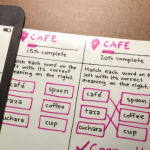 CAFE
15% complete
Match each word on the
left with its correct
meaning on the right.
café
spoon
taza
coffee
cuchara
cup
CAFE
20% complete
Match each word on the
left with its correct
meaning on the right.
café
spoon
taza
coffee
cuchara
cup